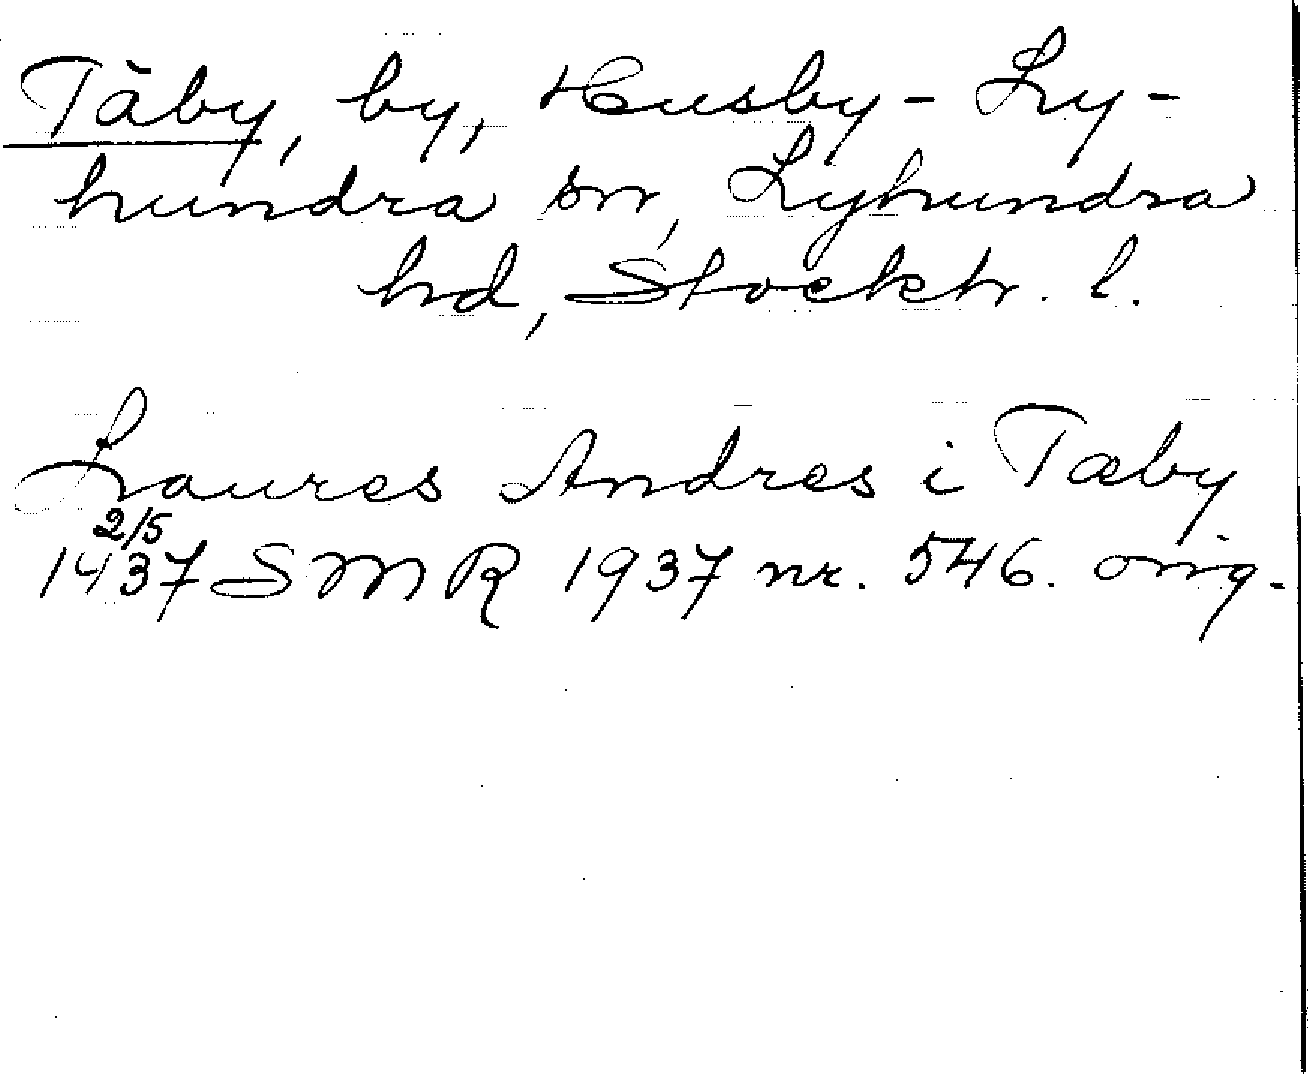 Täby, by, Husby-Ly-
hundra sn, Lyhundra
hd, Stockh. l.
Laures Andres i Tæby
2/5
1437 SMR 1937 nr. 546. orig.